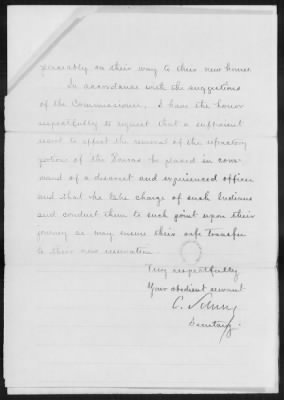 peaceably on their way to their new homes.
In accordance with the suggestions
of the Commissioner, I have the honor
respectfully to request that a sufficient
escort to effect the removal of the refractory
portion of the Poncas be placed in com-
mand of a discreet and experienced officer
and that he take charge of such Indians
and conduct them to such point upon their
journey as may ensure their safe transfer
to their new reservation.
Very respectfully
Your obedient servant
C. Schurz
Secretary.